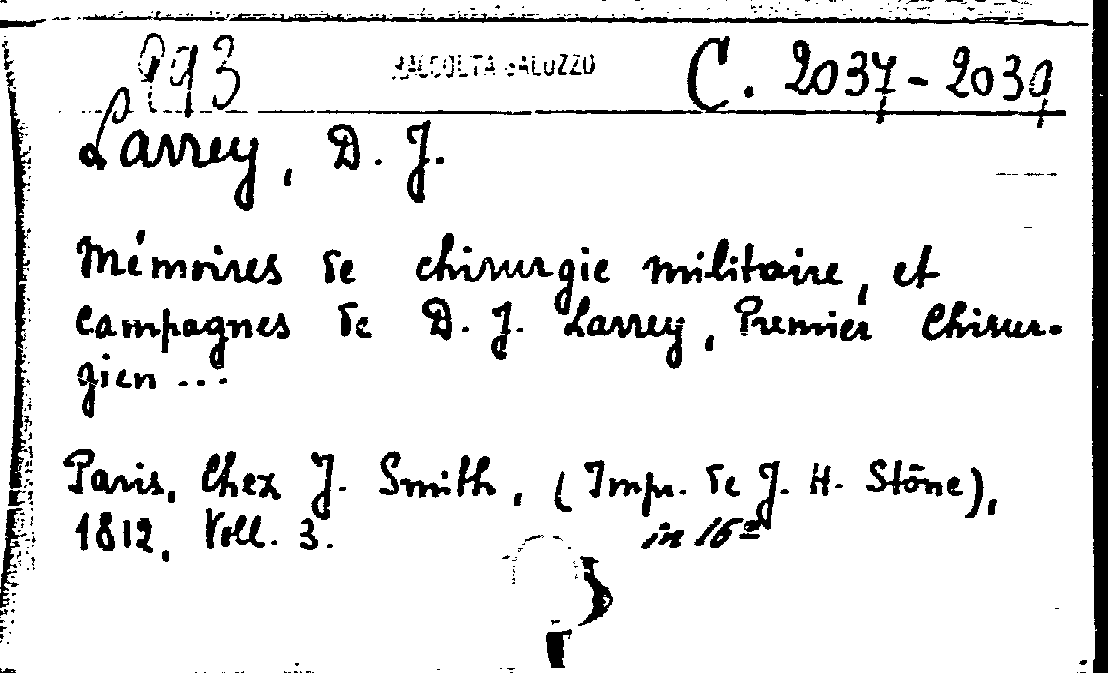 993 RACCOLTA SALUZZO C. 2037-2039
Larrey, D. J.
Mémoires de chirurgie militaire, et
Campagnes de D. J. Larrey, Premier Chirur-
gien ...
Paris, Chez J. Smith, (Impr. de J. H. Stône),
1812, Voll. 3. in 16º